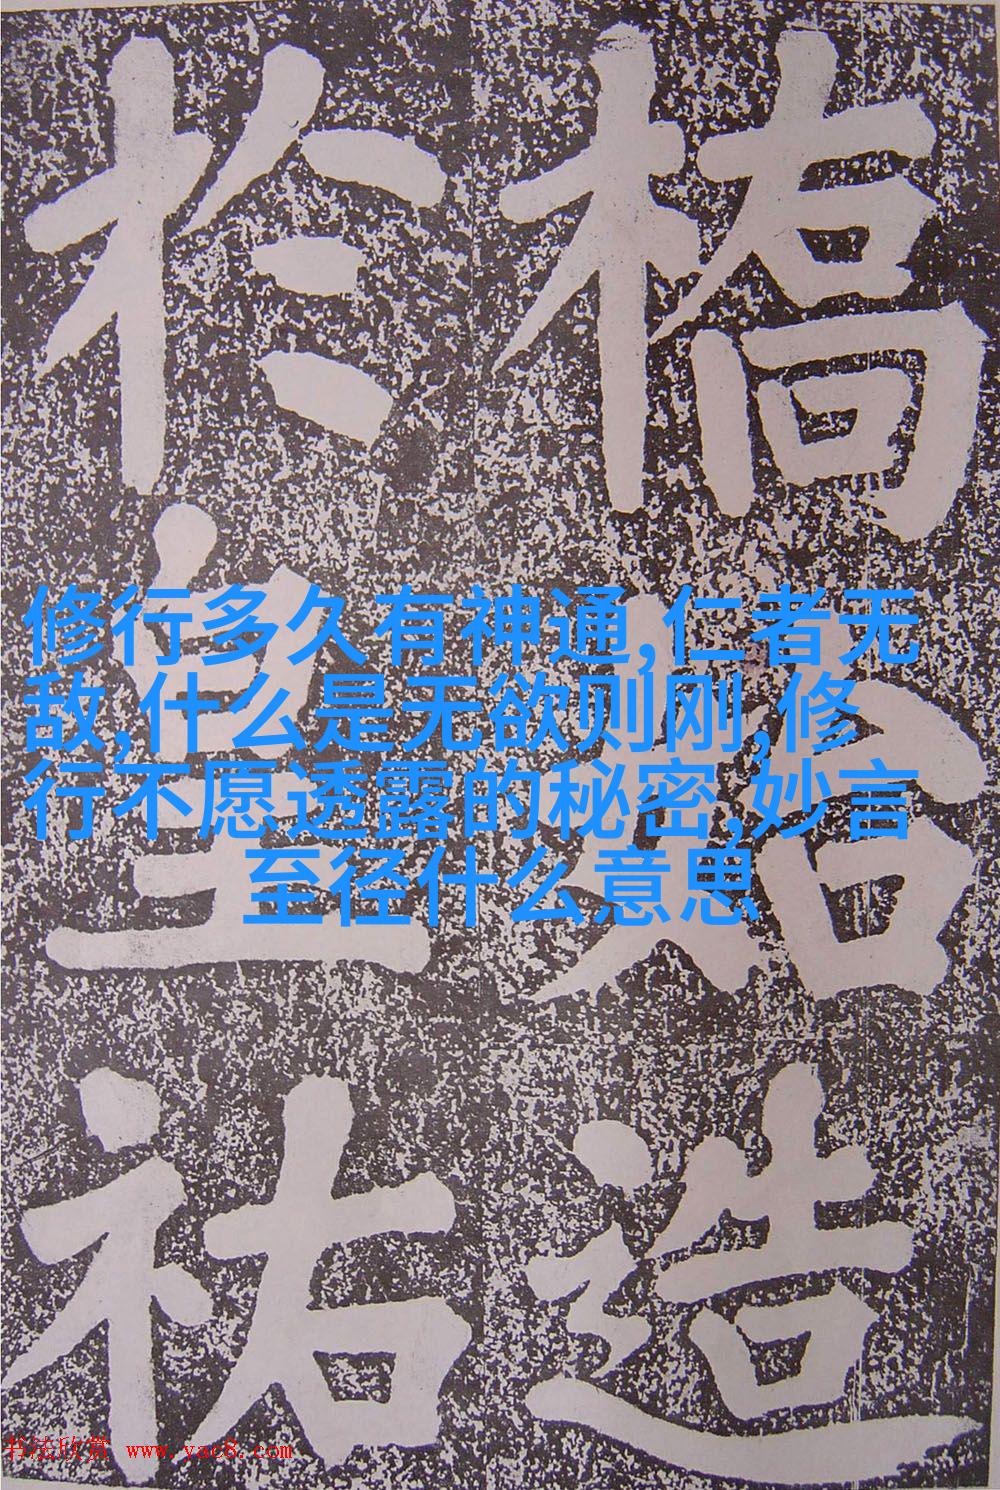 橋始造
扵皇祐
修行多久有神通,仁者无
敌,什么是无欲则刚,修
行不愿透露的秘密,妙言
至径什么意思
书法欣赏 www.yac8.com